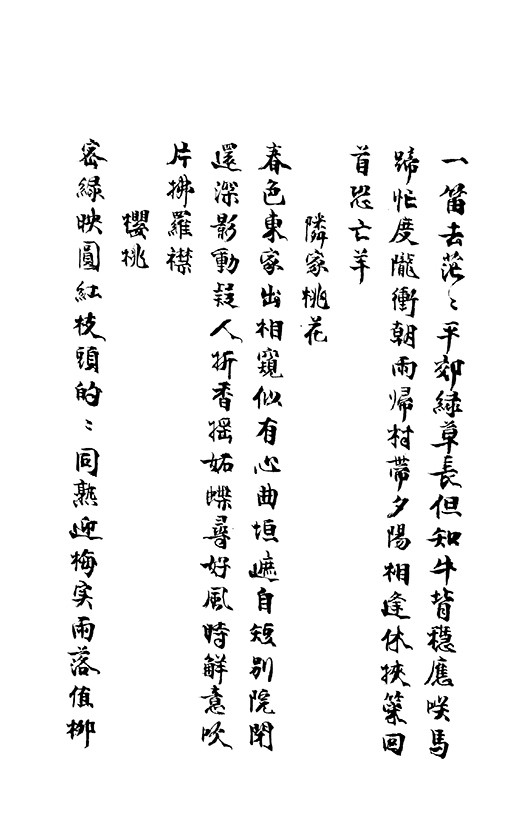 一笛去茫〻平郊綠草長但知牛背穩應咲馬
蹄忙度隴衝朝雨帰村帶夕陽相逢休挾筞回
首恐亡羊
隣家桃花
春色東家出相窺似有心曲垣遮自短別院閉
還深影動疑人折香揺妬蝶尋好風時觧意吹
片拂羅襟
櫻桃
密綠映圓紅枝頭的〻同熟迎梅实雨落值柳